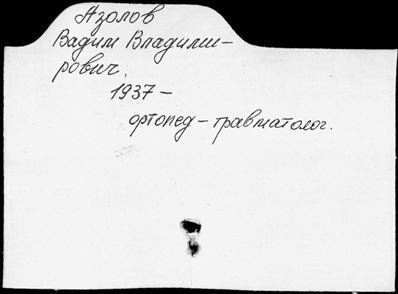 Азолов
Вадим Владими-
рович,
1937 –
ортопед – травматолог.